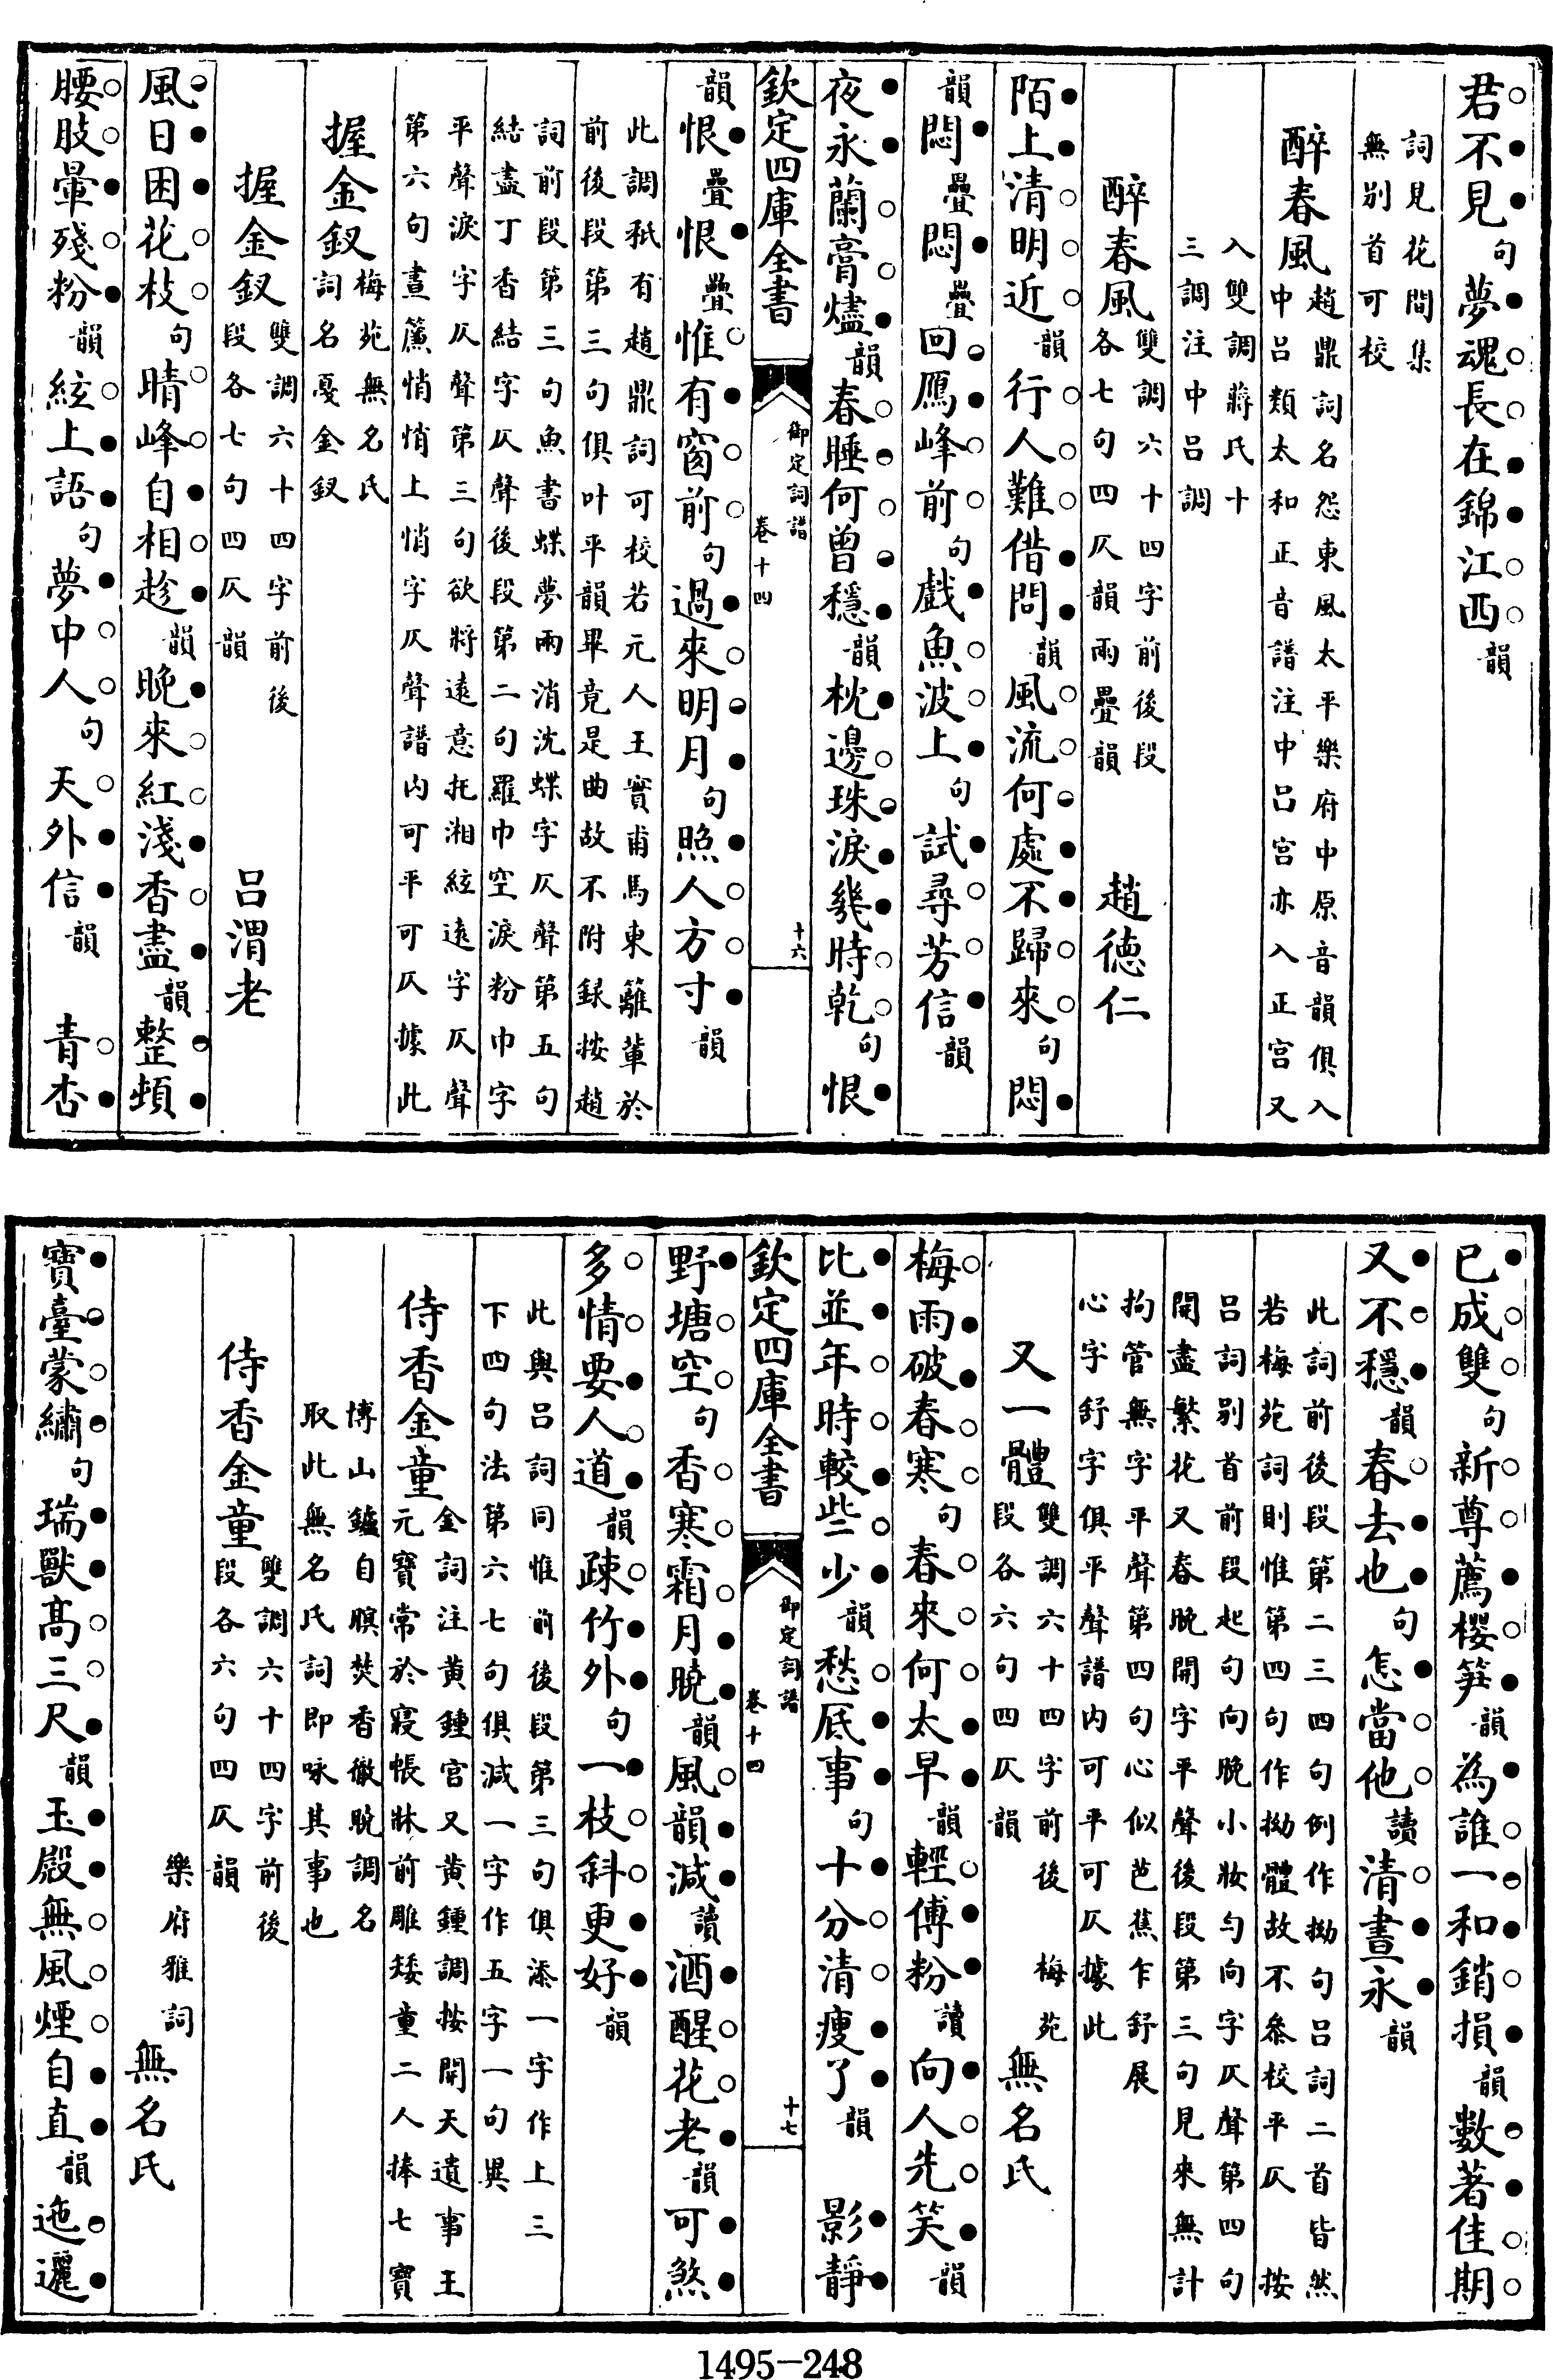 君不見句夢魂長在錦江西韻
詞見花間集
無別首可校
醉春風趙鼎詞名怨東風太平樂府中原音韻俱入
中呂類太和正音譜注中呂宮亦入正宮又
入雙調蔣氏十
三調注中呂調
醉春風雙調六十四字前後段
各七句四仄韻兩疊韻
趙德仁
陌上清明近韻行人難借問韻風流何處不歸來句悶
韻悶疊悶疊回鴈峰前句戲魚波上句試尋芳信韻
夜永蘭膏燼韻春睡何曾穩韻枕邊珠淚幾時乾句恨
欽定四庫全書
御定詞譜
卷十四
十六
韻恨疊恨疊惟有窗前句過來明月句照人方寸韻
此調祇有趙鼎詞可校若元人王實甫馬東籬輩於
前後段第三句俱叶平韻畢竟是曲故不附録按趙
詞前段第三句魚書蝶夢兩消沈蝶字仄聲第五句
結盡丁香結字仄聲後段第二句羅巾空淚粉巾字
平聲淚字仄聲第三句欲將遠意托湘絃遠字仄聲
第六句晝簾悄悄上悄字仄聲譜内可平可仄據此
握金釵梅苑無名氏
詞名戞金釵
握金釵雙調六十四字前後
段各七句四仄韻
呂渭老
風日困花枝句晴峰自相趁韻晚來紅淺香盡韻整頓
腰肢暈殘粉韻絃上語句夢中人句天外信韻青杏
已成雙句新尊薦櫻笋韻為誰一和銷損韻數著佳期
又不穩韻春去也句怎當他讀清晝永韻
此詞前後段第二三四句例作拗句呂詞二首皆然
若梅苑詞則惟第四句作拗體故不叅校平仄　按
呂詞別首前段起句向晚小妝勻向字仄聲第四句
開盡繁花又春晚開字平聲後段第三句見來無計
拘管無字平聲第四句心似芭蕉乍舒展
心字舒字俱平聲譜内可平可仄據此
又一體雙調六十四字前後
段各六句四仄韻
梅苑無名氏
梅雨破春寒句春來何太早韻輕傅粉讀向人先笑韻
比並年時較些少韻愁底事句十分清瘦了韻影靜
欽定四庫全書
御定詞譜
卷十四
十七
野塘空句香寒霜月曉韻風韻減讀酒醒花老韻可煞
多情要人道韻疎竹外句一枝斜更好韻
此與呂詞同惟前後段第三句俱添一字作上三
下四句法第六七句俱減一字作五字一句異
侍香金童金詞注黄鍾宮又黄鍾調按開天遺事王
元寶常於寢帳牀前雕矮童二人捧七寶
博山鑪自暝焚香徹曉調名
取此無名氏詞即咏其事也
侍香金童雙調六十四字前後
段各六句四仄韻
樂府雅詞無名氏
寶臺蒙繡句瑞獸髙三尺韻玉殿無風煙自直韻迤邐
1495-248